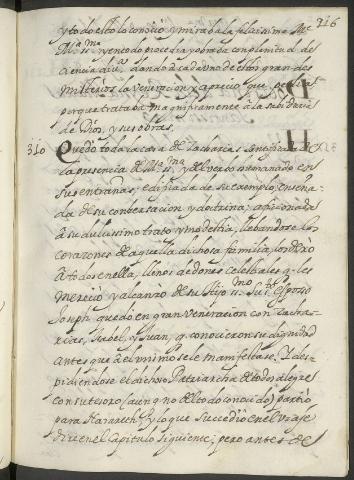 316
y todo esto lo conocio y miraba la felicissima Me
Ma. ssma y en todo procedia y obraba con plenitud de
ciencia divina dando a cada uno de estos grandes
misterios la veneracion y aprecio que pedia
porque trataba magnificamente a la sabiduria
de Dios, y sus obras.
310 Quedó toda la casa de Zacharias
la presencia de Ma. ssma y del verbo humanado en
sus entrañas; edificada de su exemplo; enseña-
da de su conbersacion y doctrina; aficionada
a su dulcissimo trato y modestia; llebandose los
corazones de aquella dichosa familia, los dexò
a todos en ella, llenos de dones celestiales q. les
mereció y alcanzó de su Hijo ssmo. Su sto. Esposo
Joseph quedó en gran veneracion con Zacha-
rias, Isabel, y Juan, q. conocieron su dignidad
antes que a el mismo se le manifestase. Y des-
pidiendose el dichoso Patriarcha de todos alegre
con su tesoro (aunq no del todo conocido) partio
para Nazareth y lo que succedio en el viaje
diré en el Capitulo siguiente; pero antes de